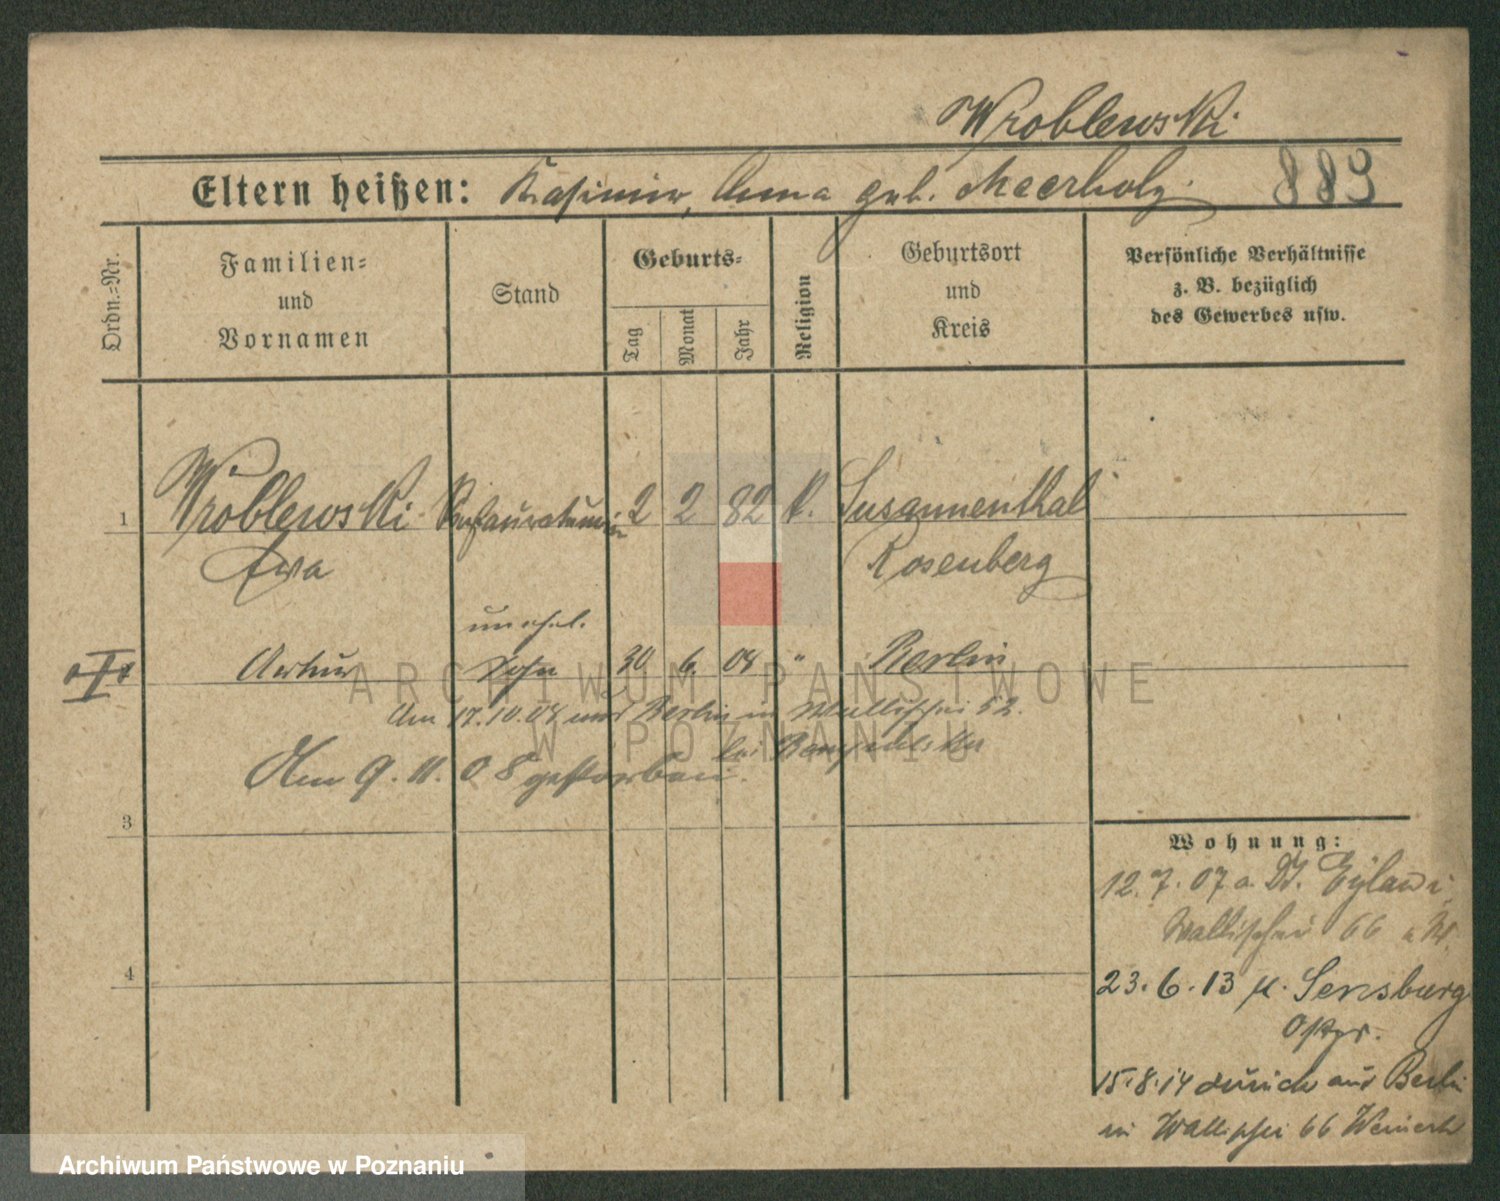 Wroblewski
Eltern heißen: Kasimir, Anna geb. Meerholz 889
Ordn.-Nr.
Familien-
und
Vornamen
Stand
Geburts-
Tag
Monat
Jahr
Religion
Geburtsort
und
Kreis
Persönliche Verhältnisse
z. B. bezüglich
des Gewerbes usw.
1 Wróblewski 2 2 82 k. Susannenthal
Ewa Rosenberg
unehel.
Artur Sohn 30 6. 08 " Berlin
Am 17.10.08 aus Berlin in Wallischei 52.
bei
Am 9. 11. 08 gestorben.
3
4
Wohnung:
12.7.07 a. Dt. Eylau i.
Wallischei 66
23.6.13 n. Sensburg
Ostpr.
15.8.14 zurück aus Berlin
in Wallischei 66
ARCHIWUM PAŃSTWOWE
W POZNANIU
Archiwum Państwowe w Poznaniu